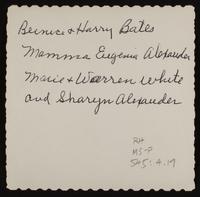 Bernice & Harry Bates
Mamma Eugenia Alexander
Marie & Warren White
and Sharyn Alexander
RH
MS-P
545:4.19